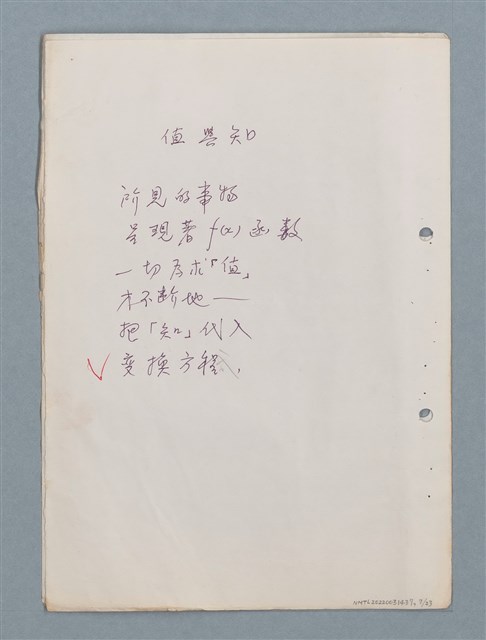 值與知
所見的事物
呈現著 f(x) 函数
一切為求「值」
才不断地——
把「知」代入
变換方程、